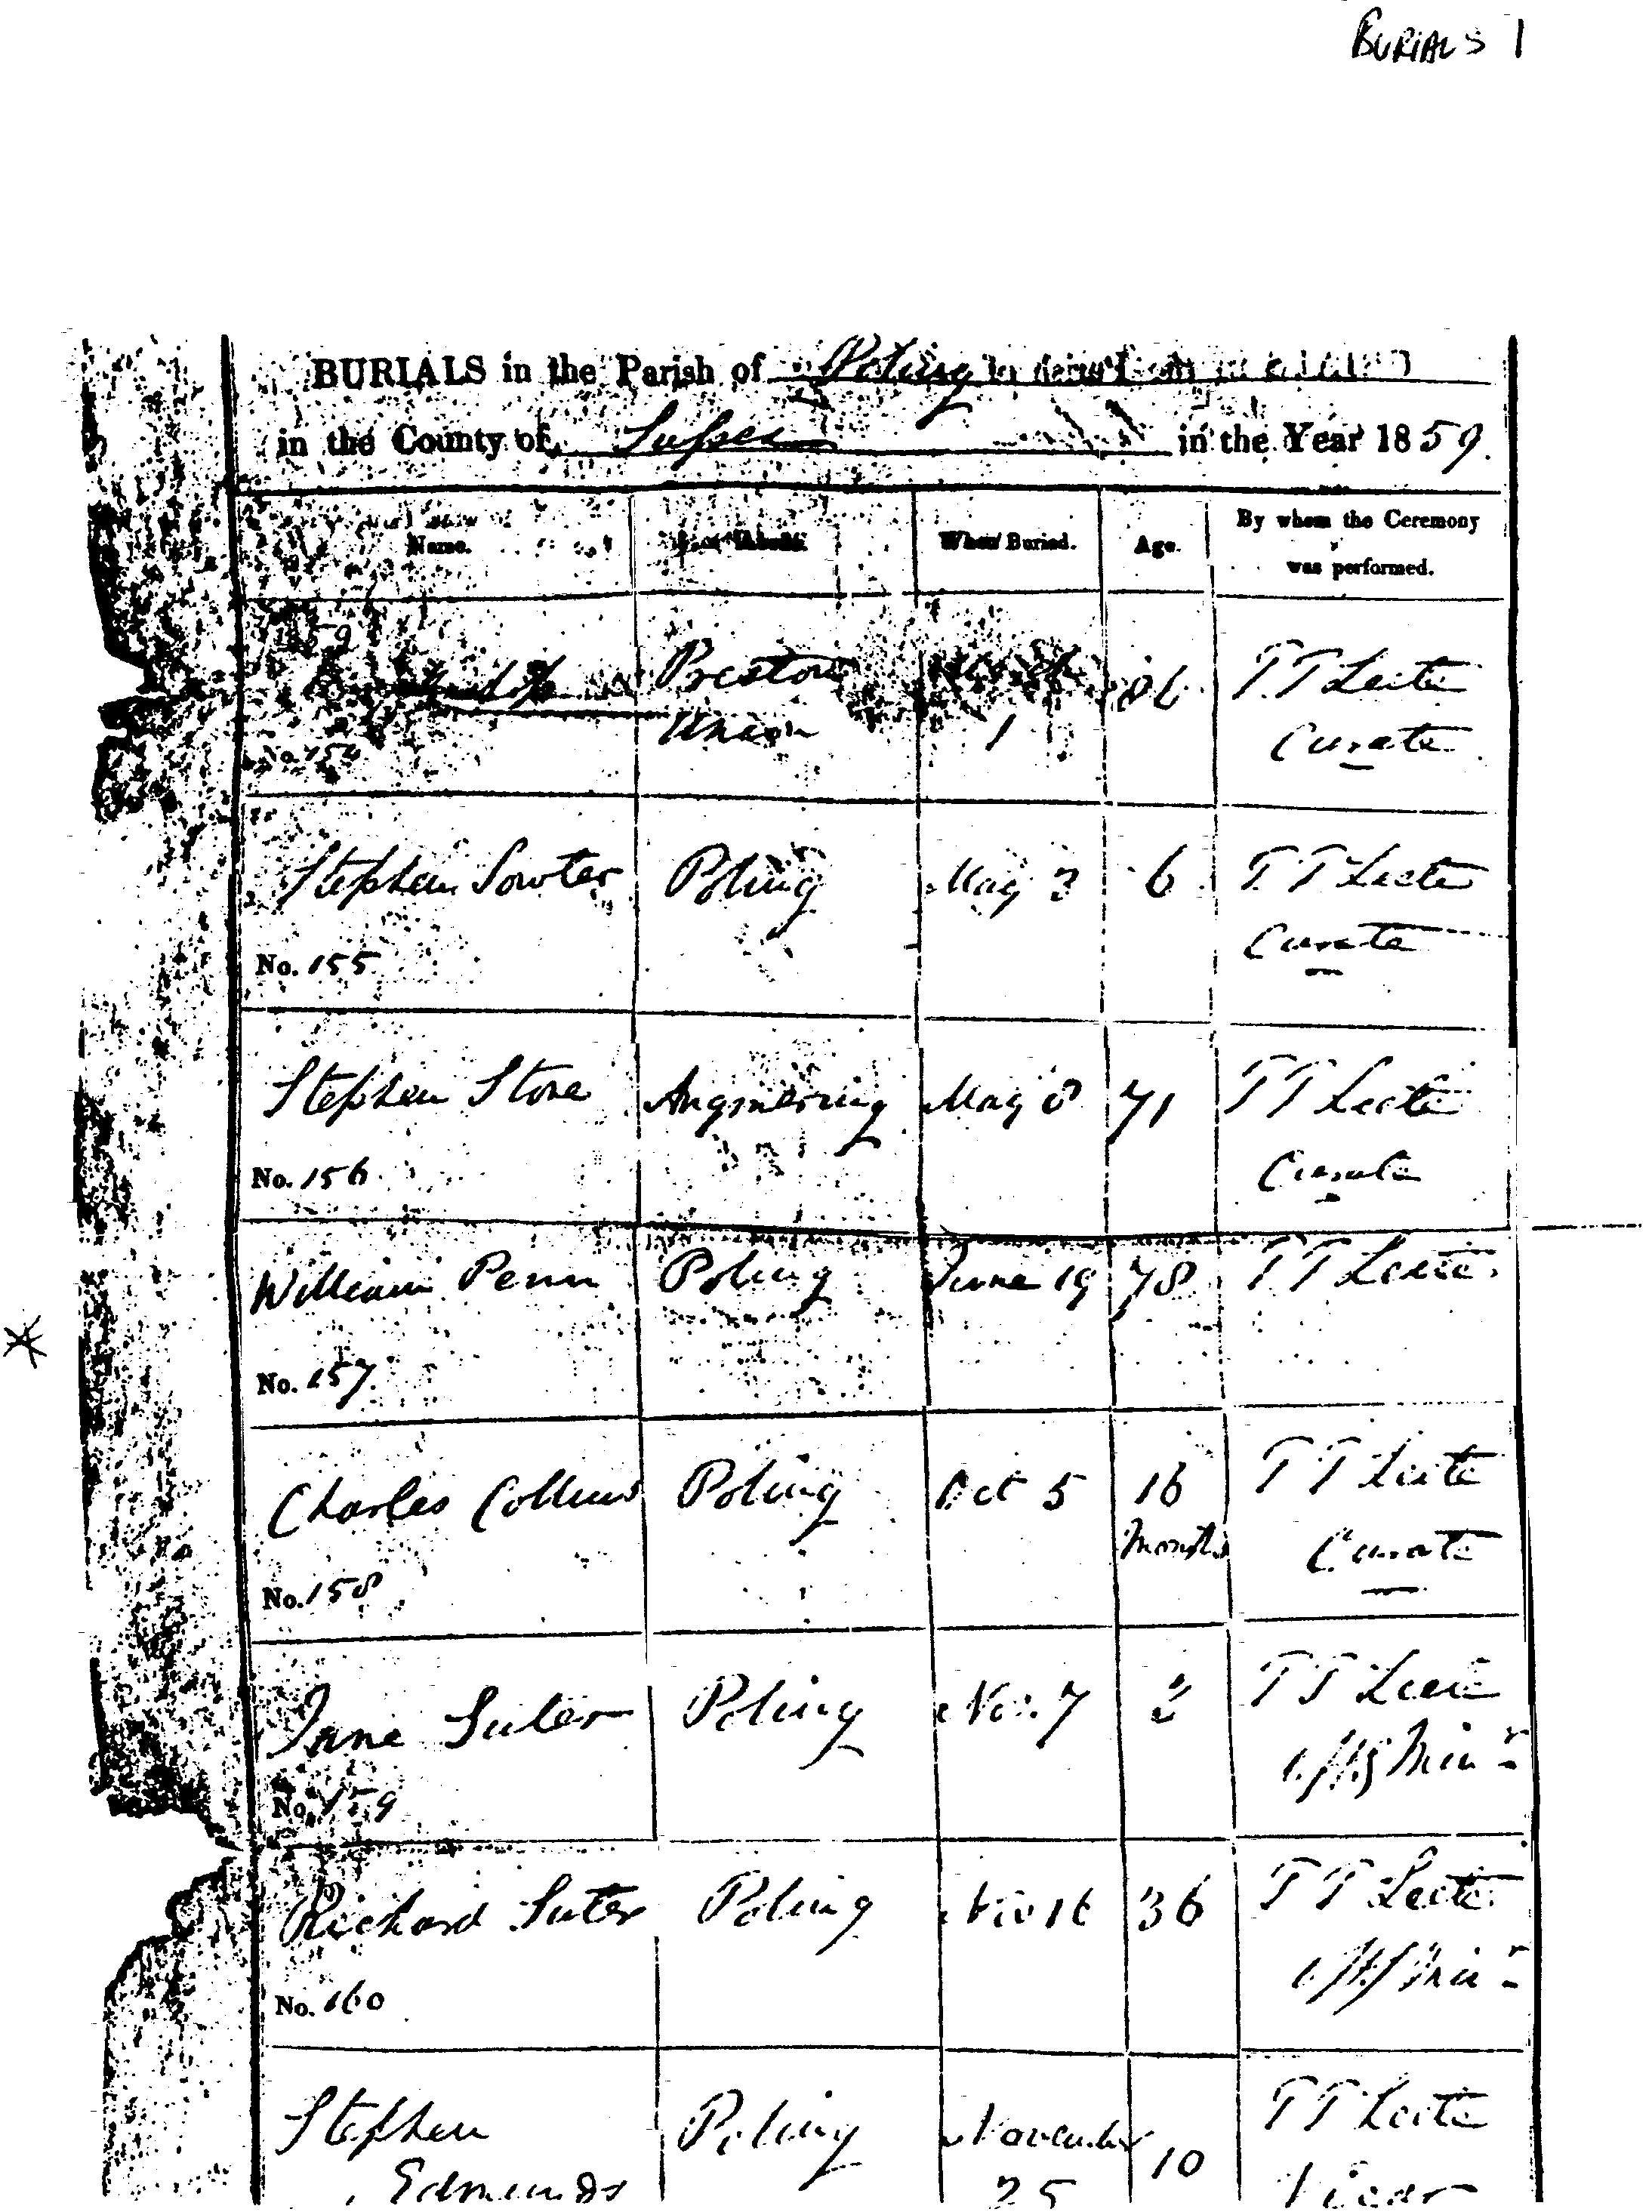 BURIALS 1
BURIALS in the Parish of Poling
in the County of Sussex in the Year 1859.
Name. Abode. When Buried. Age. By whom the Ceremony
was performed.
Preston March 86 T.T Leete
Union 1 Curate
No. 154
Stephen Sowter Poling May 3 6 T.T Leete
Curate
No. 155
Stephen Stone Angmering May 8 71 T T Leete
Curate
No. 156
William Penn Poling June 19 78 T T Leete
No. 157
Charles Collins Poling Oct 5 16 T T Leete
Months Curate
No. 158
Jane Suter Poling Nov. 7 2 T T Leete
Offg Minr
No. 159
Richard Suter Poling Nov 16 36 T T Leete
Offg Minr
No. 160
Stephen Poling November 10 T T Leete
Edmunds 25 Vicar